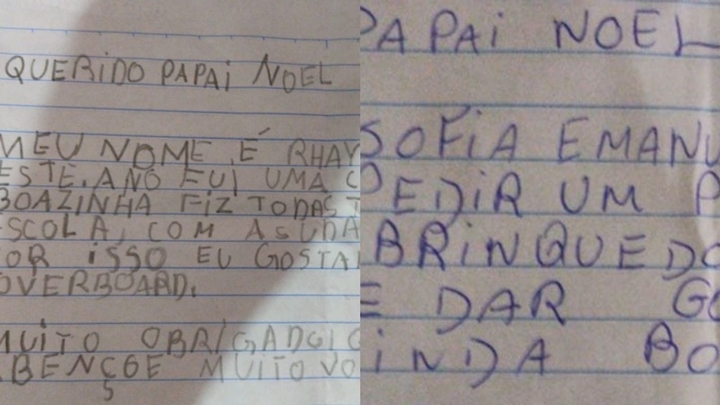 QUERiDO PAPAi NOEL
MEU NOME É RHAY
ESTE. ANO FUI UMA C
BOAZINHA FIZ TODAS T
ESCOLA, COM ASUDA
OR iSSO EU GOSTA
OVERBOARD.
MUiTO OBRIGADO
ABENÇOE MUITO VO
PAPAi NOEL
SOFiA EMANU
PEDIR UM P
BRiNQUEDO
E DAR GO
iNDA BO